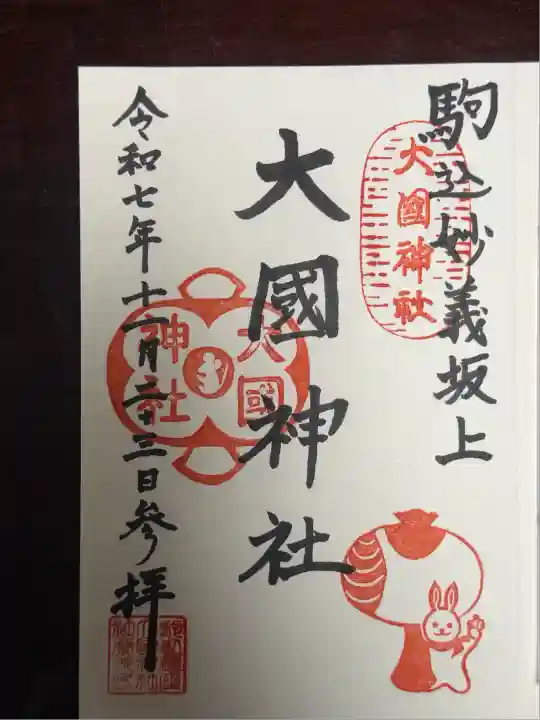 駒込妙義坂上
大國神社
大國神社
大國神社
令和七年十二月二十三日参拝